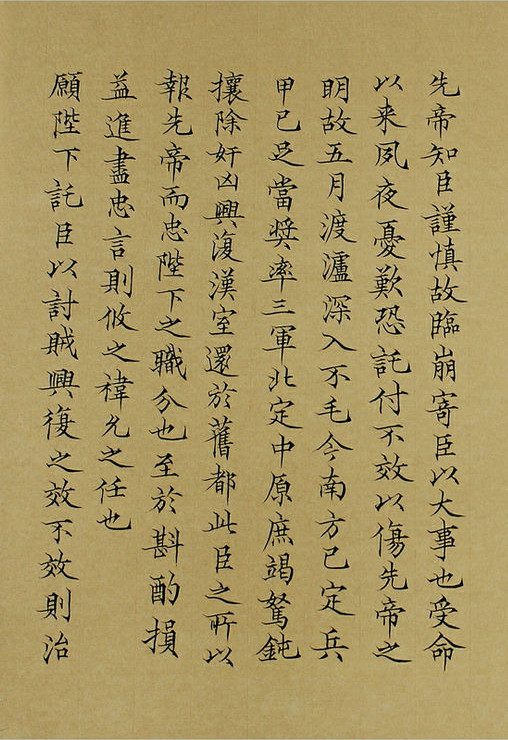 先帝知臣謹慎故臨崩寄臣以大事也受命
以来夙夜憂歎恐託付不效以傷先帝之
明故五月渡瀘深入不毛今南方已定兵
甲已足當奬率三軍北定中原庶竭駑鈍
攘除奸凶興復漢室還於舊都此臣之所以
報先帝而忠陛下之職分也至於斟酌損
益進盡忠言則攸之禕允之任也
願陛下託臣以討賊興復之效不效則治